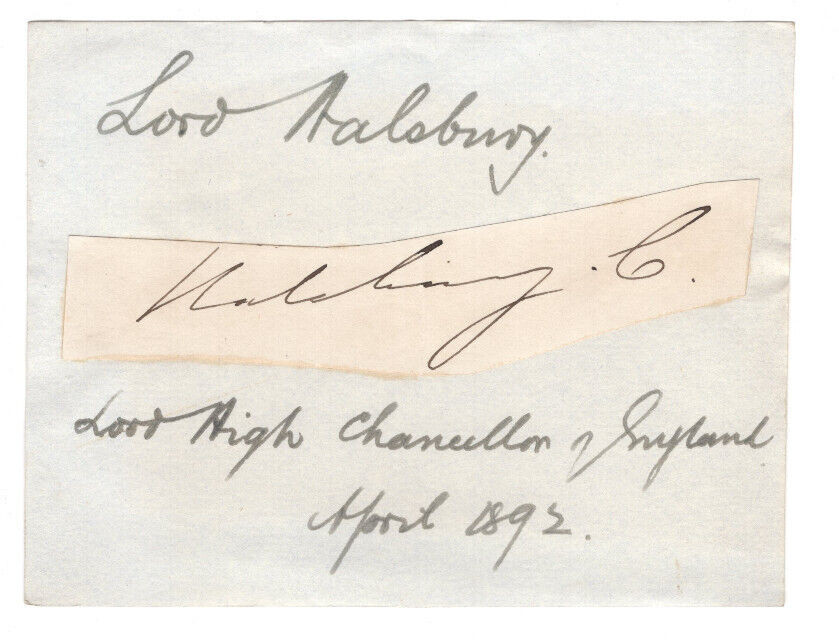 Lord Halsbury.
Halsbury. C.
Lord High Chancellor of England
April 1892.